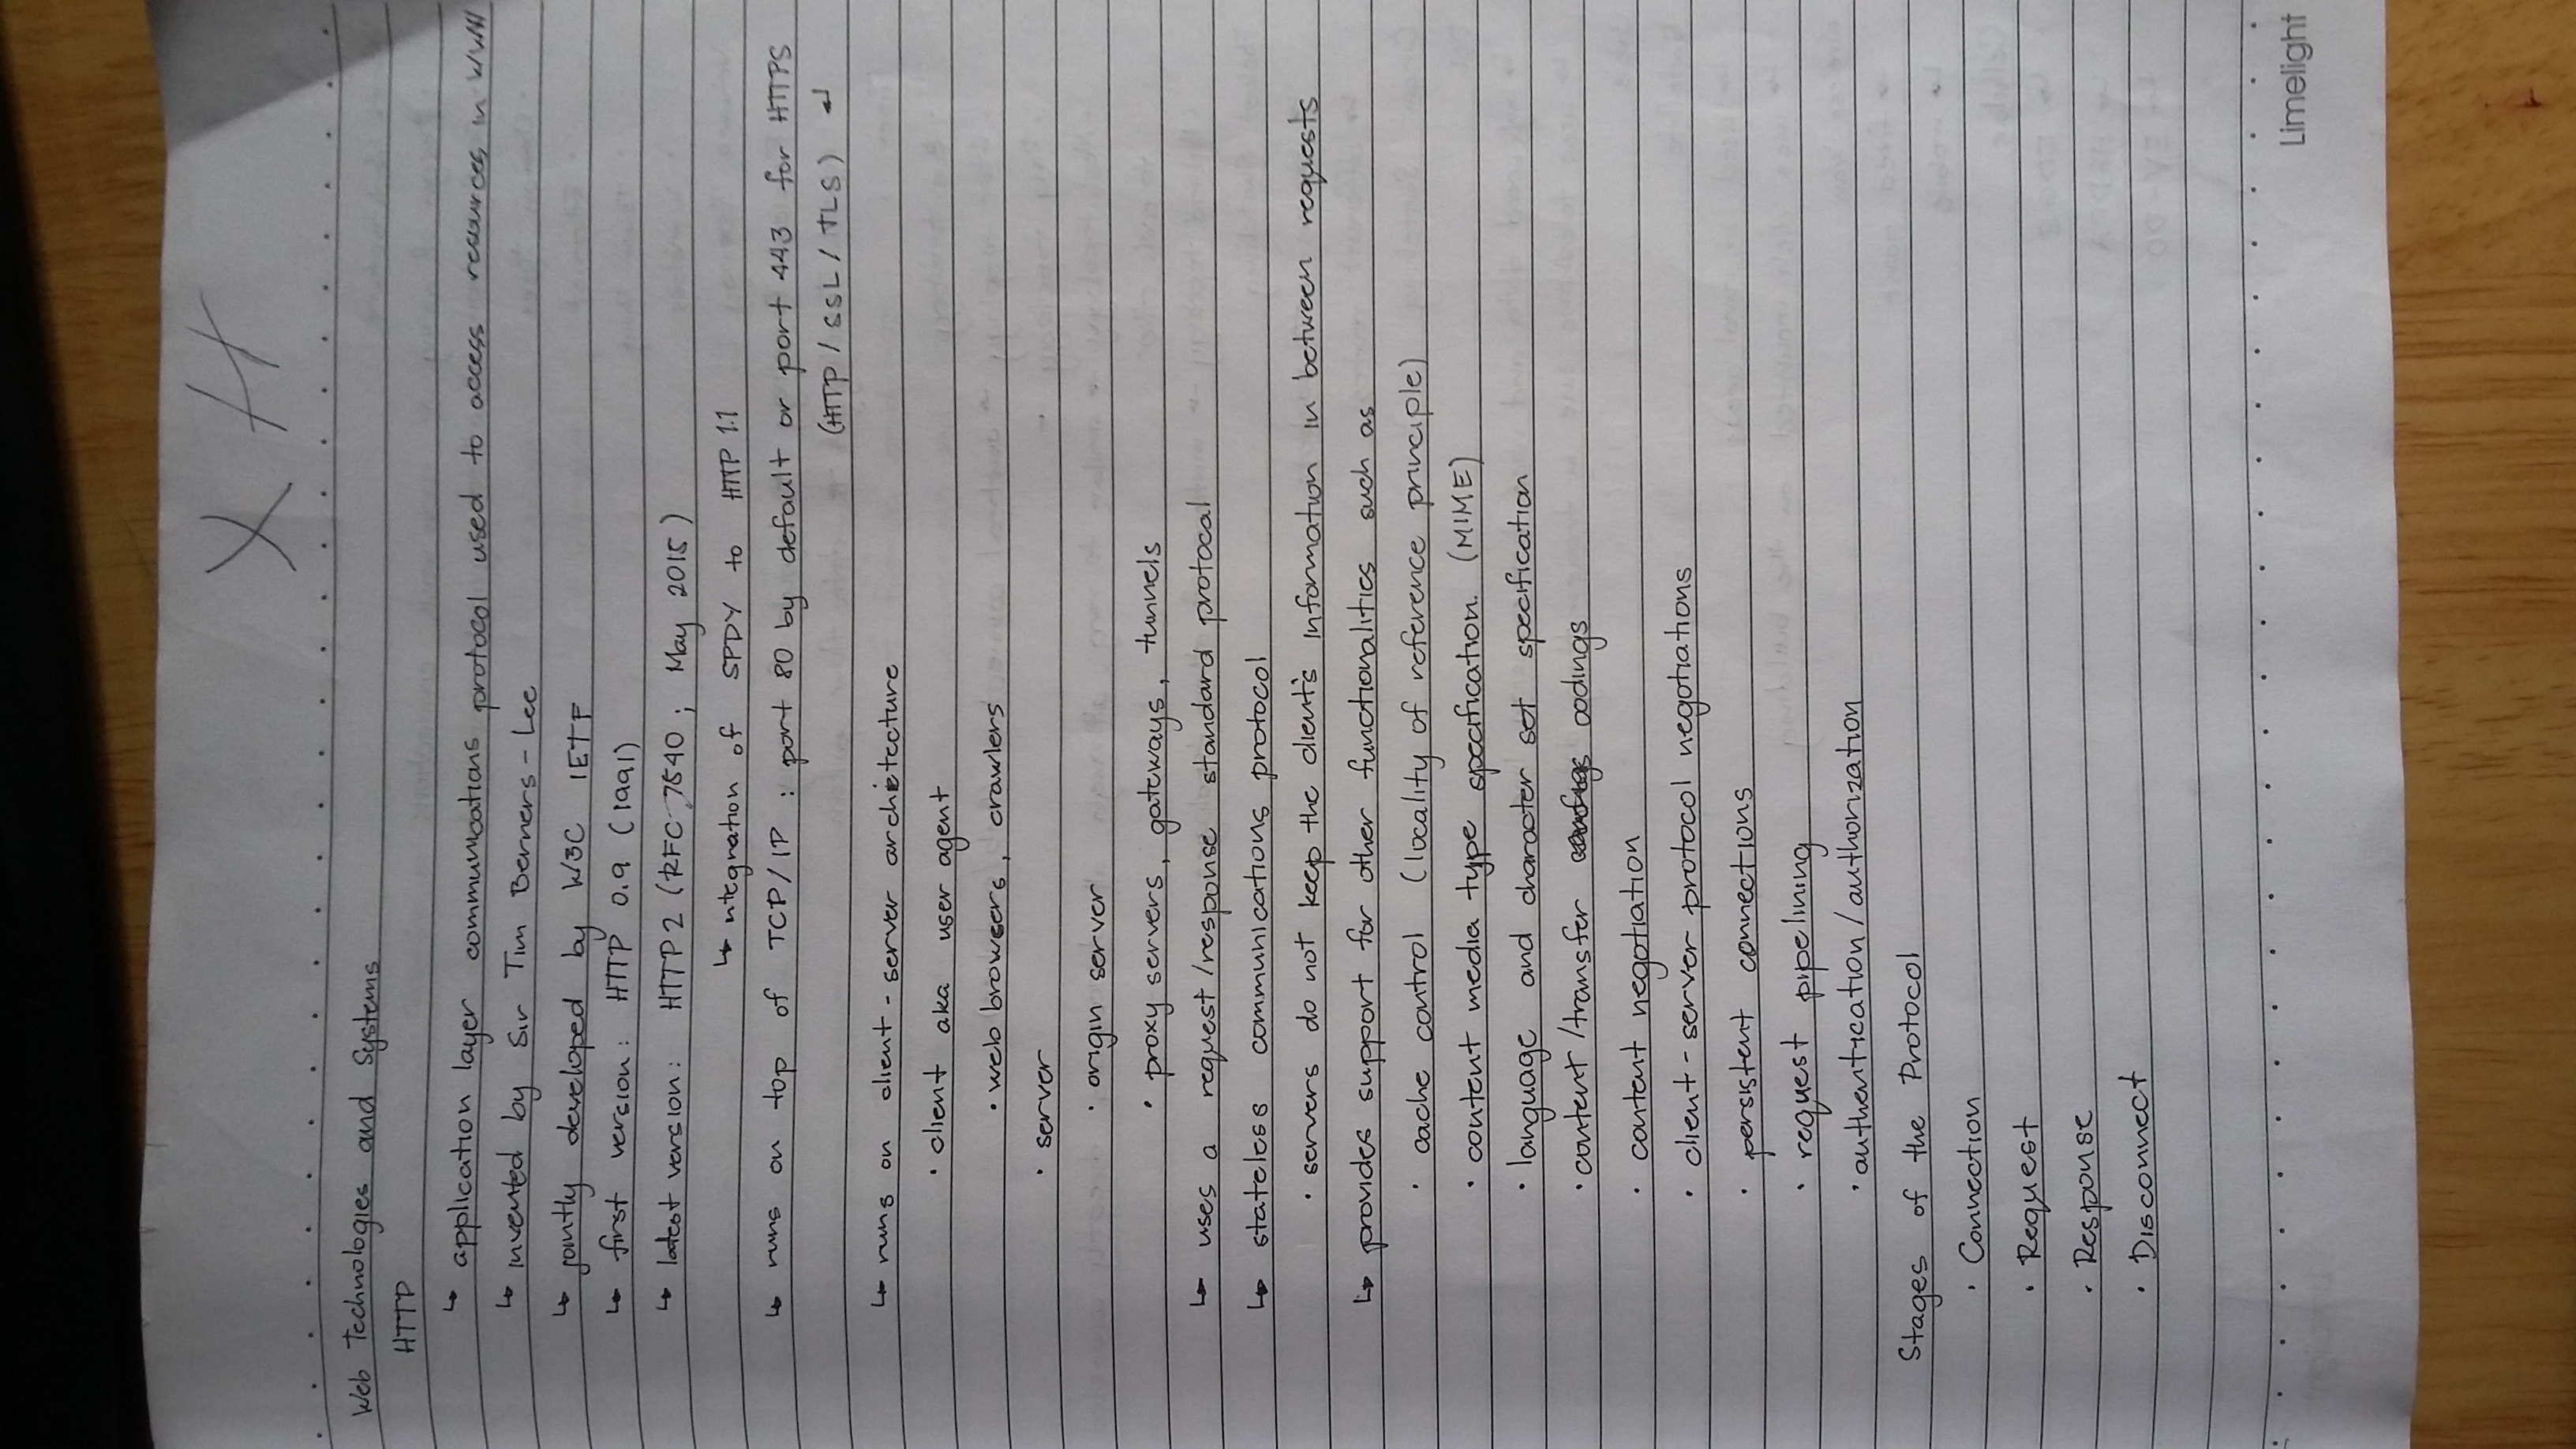 X H
Web Technologies and Systems
HTTP
↳ application layer communications protocol used to access resources in WWW
↳ invented by Sir Tim Berners-Lee
↳ jointly developed by W3C IETF
↳ first version: HTTP 0.9 (1991)
↳ latest version: HTTP 2 (RFC 7540; May 2015)
↳ integration of SPDY to HTTP 1.1
↳ runs on top of TCP/IP : port 80 by default or port 443 for HTTPS
(HTTP / SSL / TLS) ↲
↳ runs on client-server architecture
· client aka user agent
· web browsers, crawlers
· server
· origin server
· proxy servers, gateways, tunnels
↳ uses a request/response standard protocal
↳ stateless communications protocol
· servers do not keep the client's information in between requests
↳ provides support for other functionalities such as
· cache control (locality of reference principle)
· content media type specification. (MIME)
· language and character set specification
· content/transfer codings
· content negotiation
· client-server protocol negotiations
· persistent connections
· request pipelining
· authentication/authorization
Stages of the Protocol
· Connection
· Request
· Response
· Disconnect
Limelight